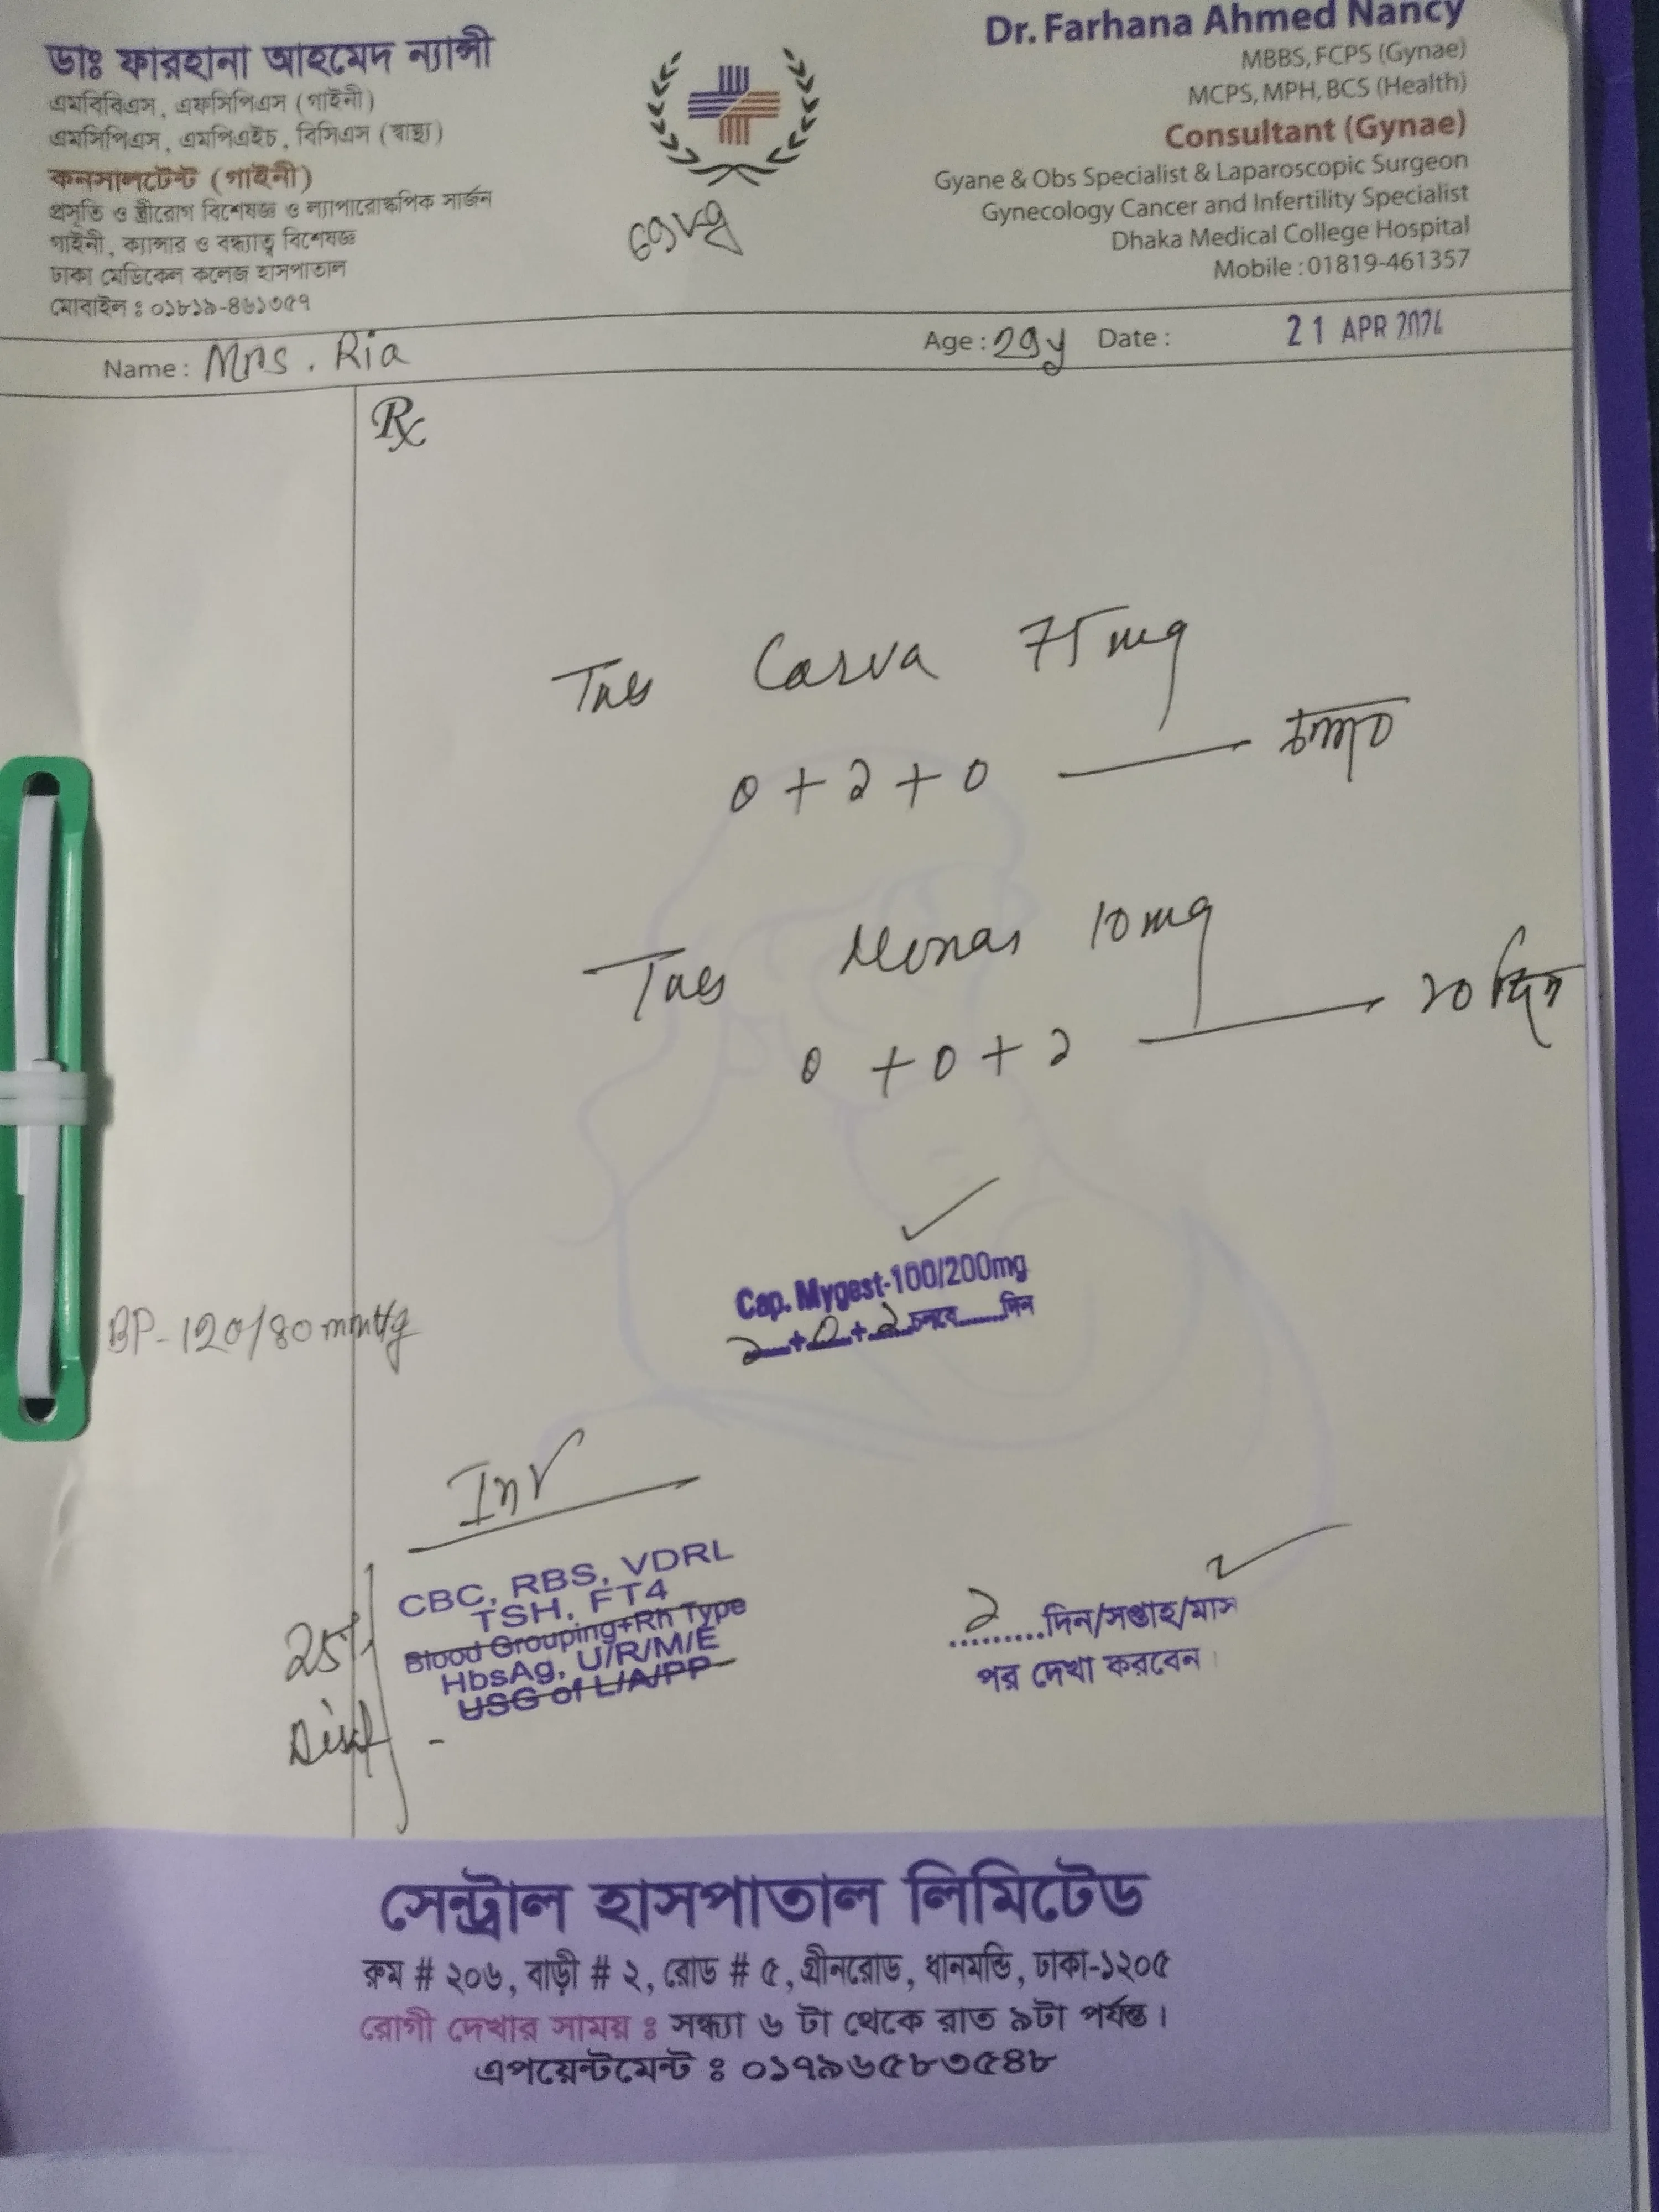 ডাঃ ফারহানা আহমেদ ন্যান্সী
এমবিবিএস, এফসিপিএস (গাইনী)
এমসিপিএস, এমপিএইচ, বিসিএস (স্বাস্থ্য)
কনসালটেন্ট (গাইনী)
প্রসূতি ও স্ত্রীরোগ বিশেষজ্ঞ ও ল্যাপারোস্কপিক সার্জন
গাইনী, ক্যান্সার ও বন্ধ্যাত্ব বিশেষজ্ঞ
ঢাকা মেডিকেল কলেজ হাসপাতাল
মোবাইল : ০১৮১৯-৪৬১৩৫৭
Dr. Farhana Ahmed Nancy
MBBS, FCPS (Gynae)
MCPS, MPH, BCS (Health)
Consultant (Gynae)
Gyane & Obs Specialist & Laparoscopic Surgeon
Gynecology Cancer and Infertility Specialist
Dhaka Medical College Hospital
Mobile : 01819-461357
Name : Mrs. Ria Age : 29y Date : 21 APR 2024
Rx
Tab Carva 75 mg
0 + ১ + 0 — চলবে
Tab Monas 10 mg
0 + 0 + ১ — ২০ দিন
Cap. Mygest-100/200mg
১ + 0 + ১ চলবে......দিন
BP-120/80 mmHg
Inv
CBC, RBS, VDRL
TSH, FT4
Blood Grouping+Rh Type
HbsAg, U/R/M/E
USG of L/A/PP
25%
২.........দিন/সপ্তাহ/মাস
পর দেখা করবেন।
সেন্ট্রাল হাসপাতাল লিমিটেড
রুম # ২০৬, বাড়ী # ২, রোড # ৫, গ্রীনরোড, ধানমন্ডি, ঢাকা-১২০৫
রোগী দেখার সাময় : সন্ধ্যা ৬ টা থেকে রাত ৯টা পর্যন্ত।
এপয়েন্টমেন্ট : ০১৭৯৬৫৮৩৫৪৮